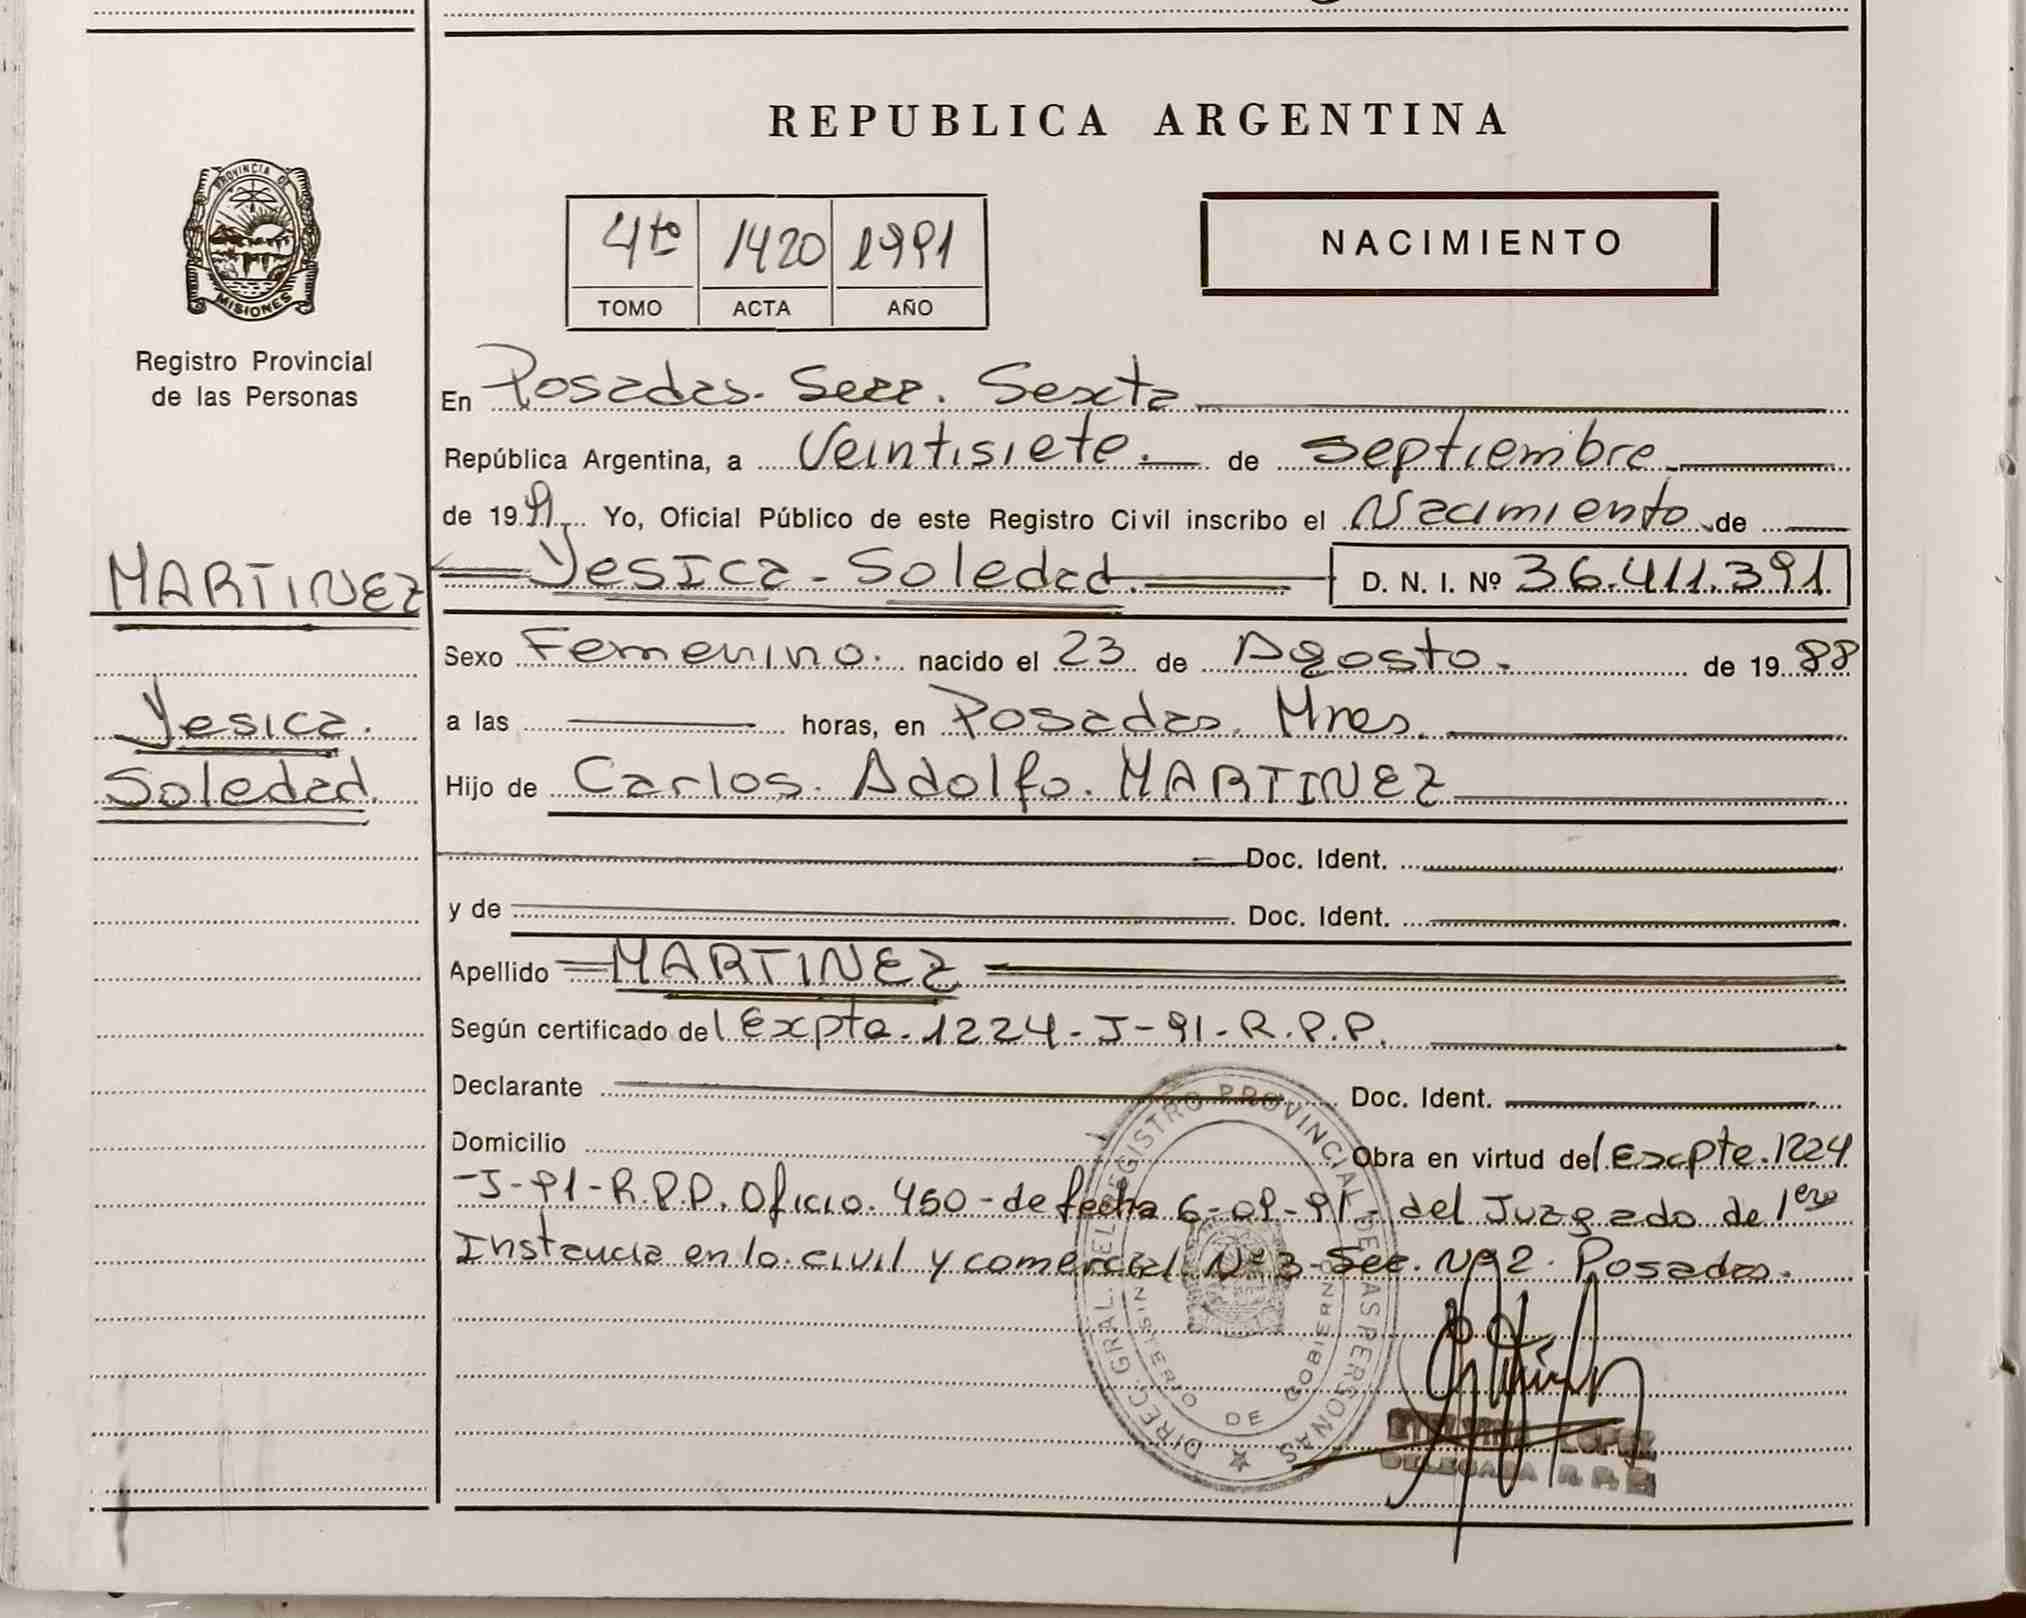 REPUBLICA ARGENTINA
PROVINCIA DE
MISIONES
Registro Provincial
de las Personas
4to 1420 1991
TOMO ACTA AÑO
NACIMIENTO
En Posadas. Secc. Sexta
República Argentina, a Veintisiete. de septiembre
de 1991 Yo, Oficial Público de este Registro Civil inscribo el Nacimiento de
MARTINEZ
Yesica - Soledad. D. N. I. Nº 36.411.391.
Sexo Femenino. nacido el 23 de Agosto. de 1988
Yesica.
Soledad.
a las horas, en Posadas. Mnes.
Hijo de Carlos. Adolfo. MARTINEZ
Doc. Ident.
y de Doc. Ident.
Apellido MARTINEZ
Según certificado del Expte. 1224 - J - 91 - R.P.P.
Declarante Doc. Ident.
Domicilio Obra en virtud del Expte. 1224
- J - 91 - R.P.P. Oficio. 450 - de fecha 6 - 09 - 91 - del Juzgado de 1era
Instancia en lo civil y comercial Nº 3 - Sec. Nº 2. Posadas.
DIREC. GRAL. DEL REGISTRO PROVINCIAL DE LAS PERSONAS
MINISTERIO DE GOBIERNO
LOPEZ
DELEGADA R. P. P.